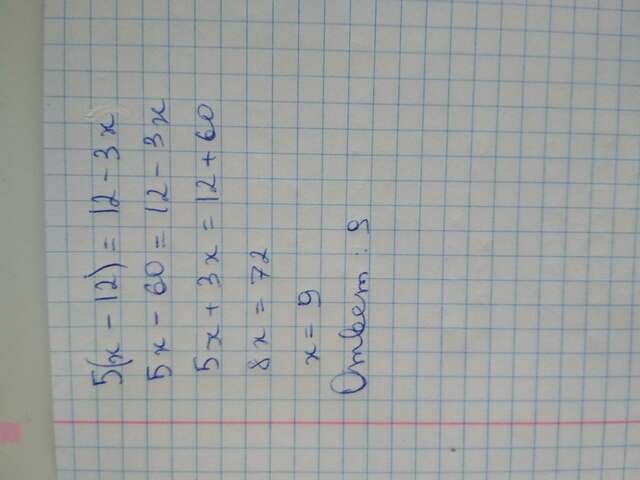 5(x - 12) = 12 - 3x
5x - 60 = 12 - 3x
5x + 3x = 12 + 60
8x = 72
x = 9
Ответ: 9